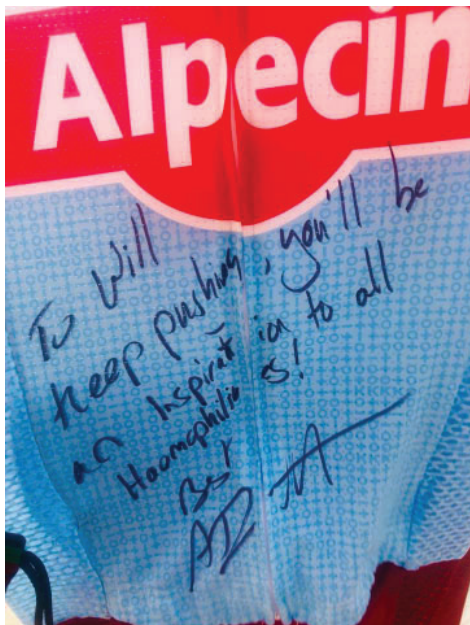 Alpecin
To Will
Keep pushing, you'll be
an Inspiration to all
Haemophiliacs!
Best